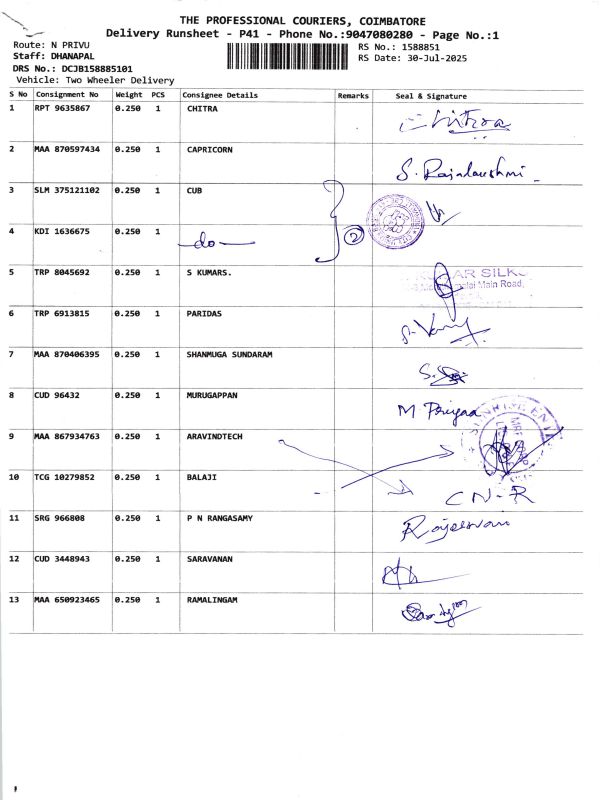 THE PROFESSIONAL COURIERS, COIMBATORE
Delivery Runsheet - P41 - Phone No.:9047080280 - Page No.:1
Route: N PRIVU
RS No.: 1588851
Staff: DHANAPAL
RS Date: 30-Jul-2025
DRS No.: DCJB158885101
Vehicle: Two Wheeler Delivery
S No Consignment No Weight PCS Consignee Details Remarks Seal & Signature
1 RPT 9635867 0.250 1 CHITRA Chitra
2 MAA 870597434 0.250 1 CAPRICORN S. Rajalakshmi
3 SLM 375121102 0.250 1 CUB
4 KDI 1636675 0.250 1 -do- 2
5 TRP 8045692 0.250 1 S KUMARS. AR SILKS
Main Road,
6 TRP 6913815 0.250 1 PARIDAS
7 MAA 870406395 0.250 1 SHANMUGA SUNDARAM
8 CUD 96432 0.250 1 MURUGAPPAN M Priyaa
9 MAA 867934763 0.250 1 ARAVINDTECH SUNRISE ENT
10 TCG 10279852 0.250 1 BALAJI CN-R
11 SRG 966808 0.250 1 P N RANGASAMY Rajeswari
12 CUD 3448943 0.250 1 SARAVANAN
13 MAA 650923465 0.250 1 RAMALINGAM